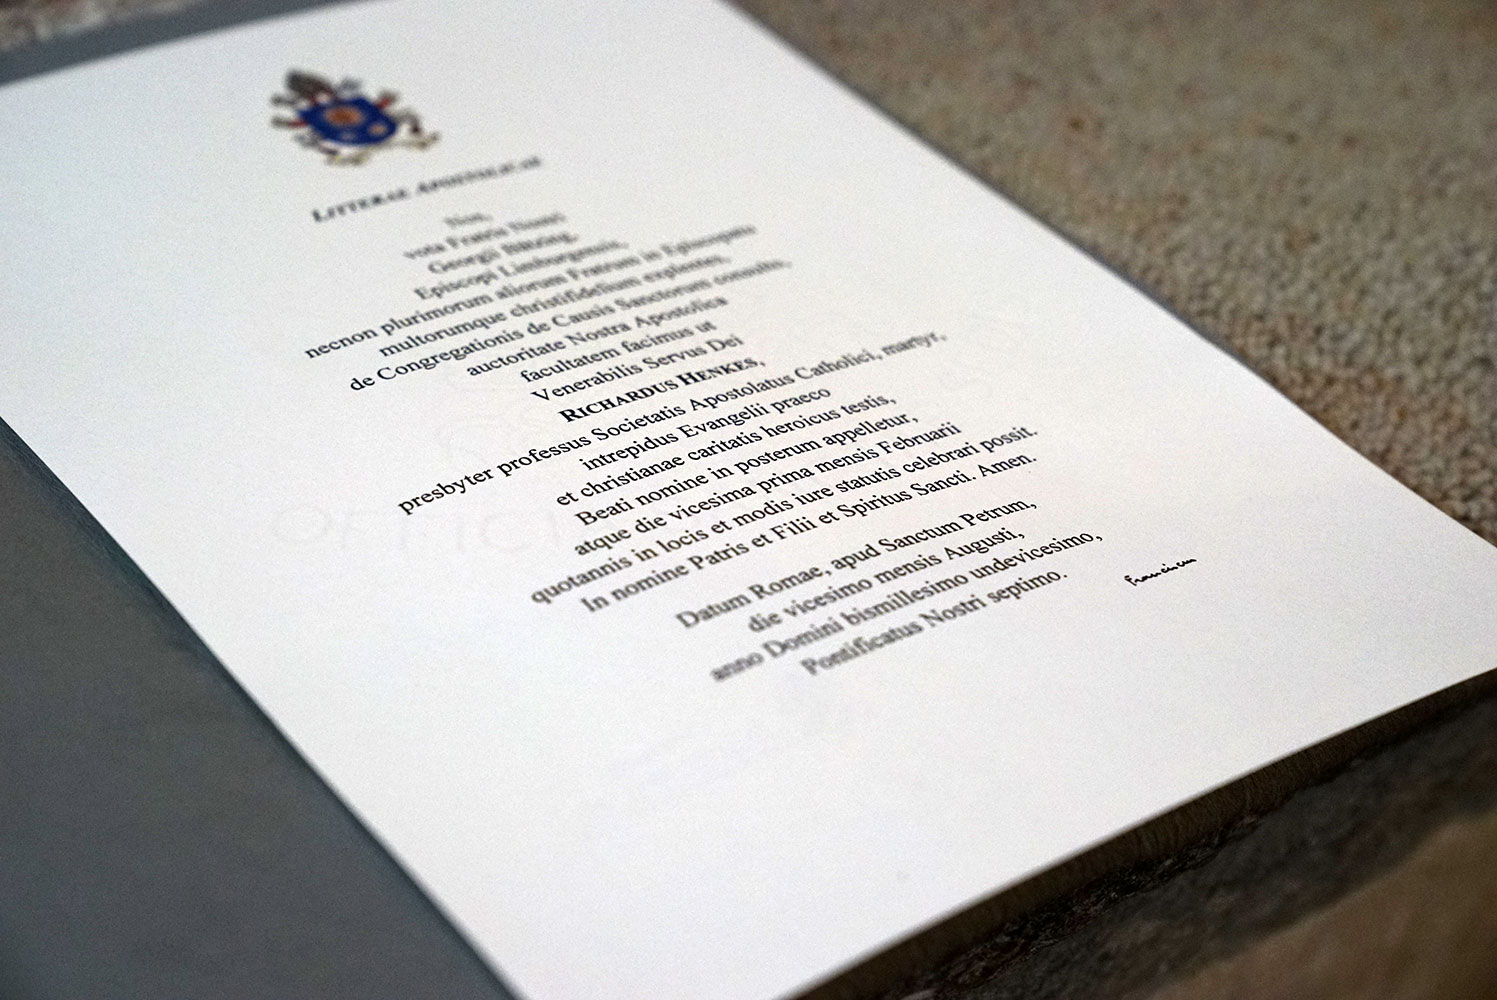 LITTERAE APOSTOLICAE
Nos,
vota Fratris Nostri
Georgii Bätzing,
Episcopi Limburgensis,
necnon plurimorum aliorum Fratrum in Episcopatu
multorumque christifidelium explentes,
de Congregationis de Causis Sanctorum consulto,
auctoritate Nostra Apostolica
facultatem facimus ut
Venerabilis Servus Dei
RICHARDUS HENKES,
presbyter professus Societatis Apostolatus Catholici, martyr,
intrepidus Evangelii praeco
et christianae caritatis heroicus testis,
Beati nomine in posterum appelletur,
atque die vicesima prima mensis Februarii
quotannis in locis et modis iure statutis celebrari possit.
In nomine Patris et Filii et Spiritus Sancti. Amen.
Datum Romae, apud Sanctum Petrum,
die vicesimo mensis Augusti,
anno Domini bismillesimo undevicesimo,
Pontificatus Nostri septimo.
Franciscus